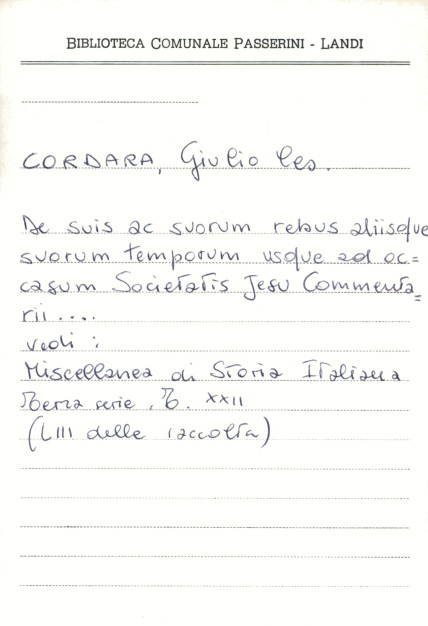 BIBLIOTECA COMUNALE PASSERINI - LANDI
CORDARA, Giulio Ces.
De suis ac suorum rebus aliisque
suorum temporum usque ad oc=
casum Societatis Jesu Commenta=
rii ....
vedi :
Miscellanea di Storia Italiana
Terza serie, T. XXII
(LIII della raccolta)